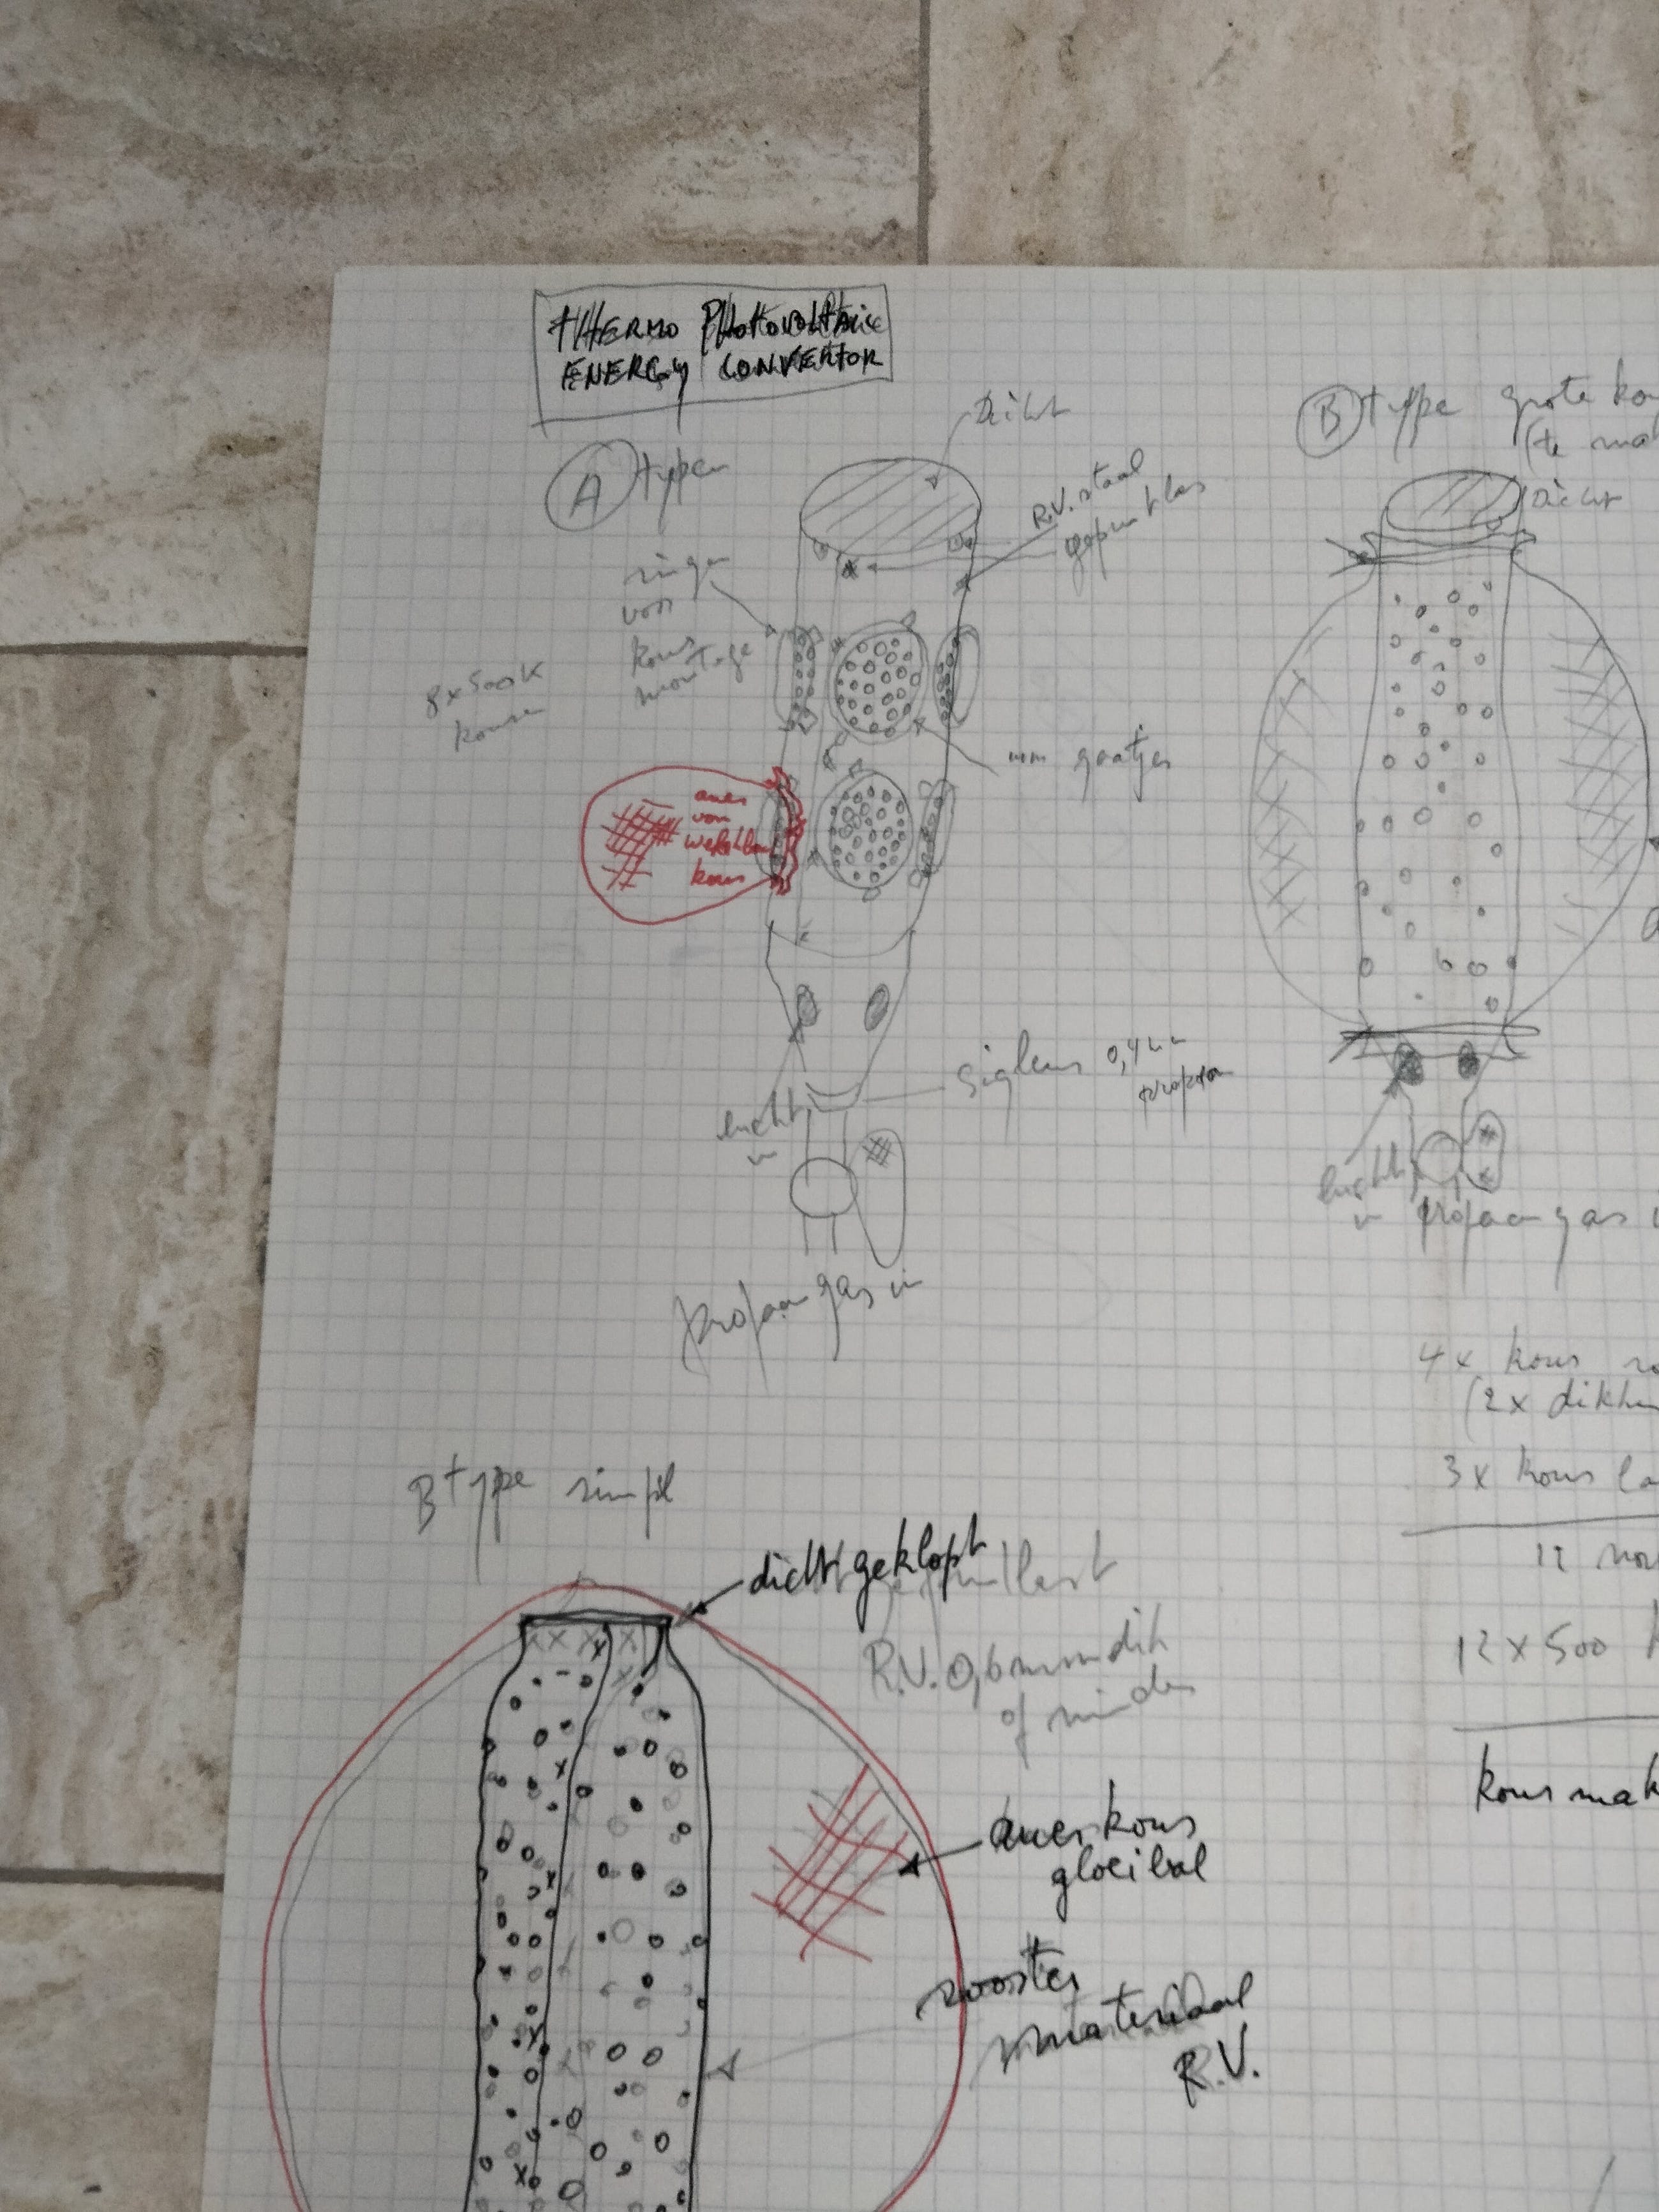 THERMO PHOTOVOLTAIC
ENERGY CONVERTOR
A type
Dicht
R.V. staal
gepuntlas
ringen
voor
kous
montage
8x500K
kousen
mm gaatjes
auer
von
kous
lucht
in
Siglens 0,4
propaan gas in
B type grote
(te
Dicht
lucht
in propaan gas
4x kous
(2x
3x kous
12
12 x 500
kous mak
B type simpel
dicht geklopt
R.V. 0,6 mm dik
of minder
auerkous
gloeibal
rooster
materiaal
R.V.